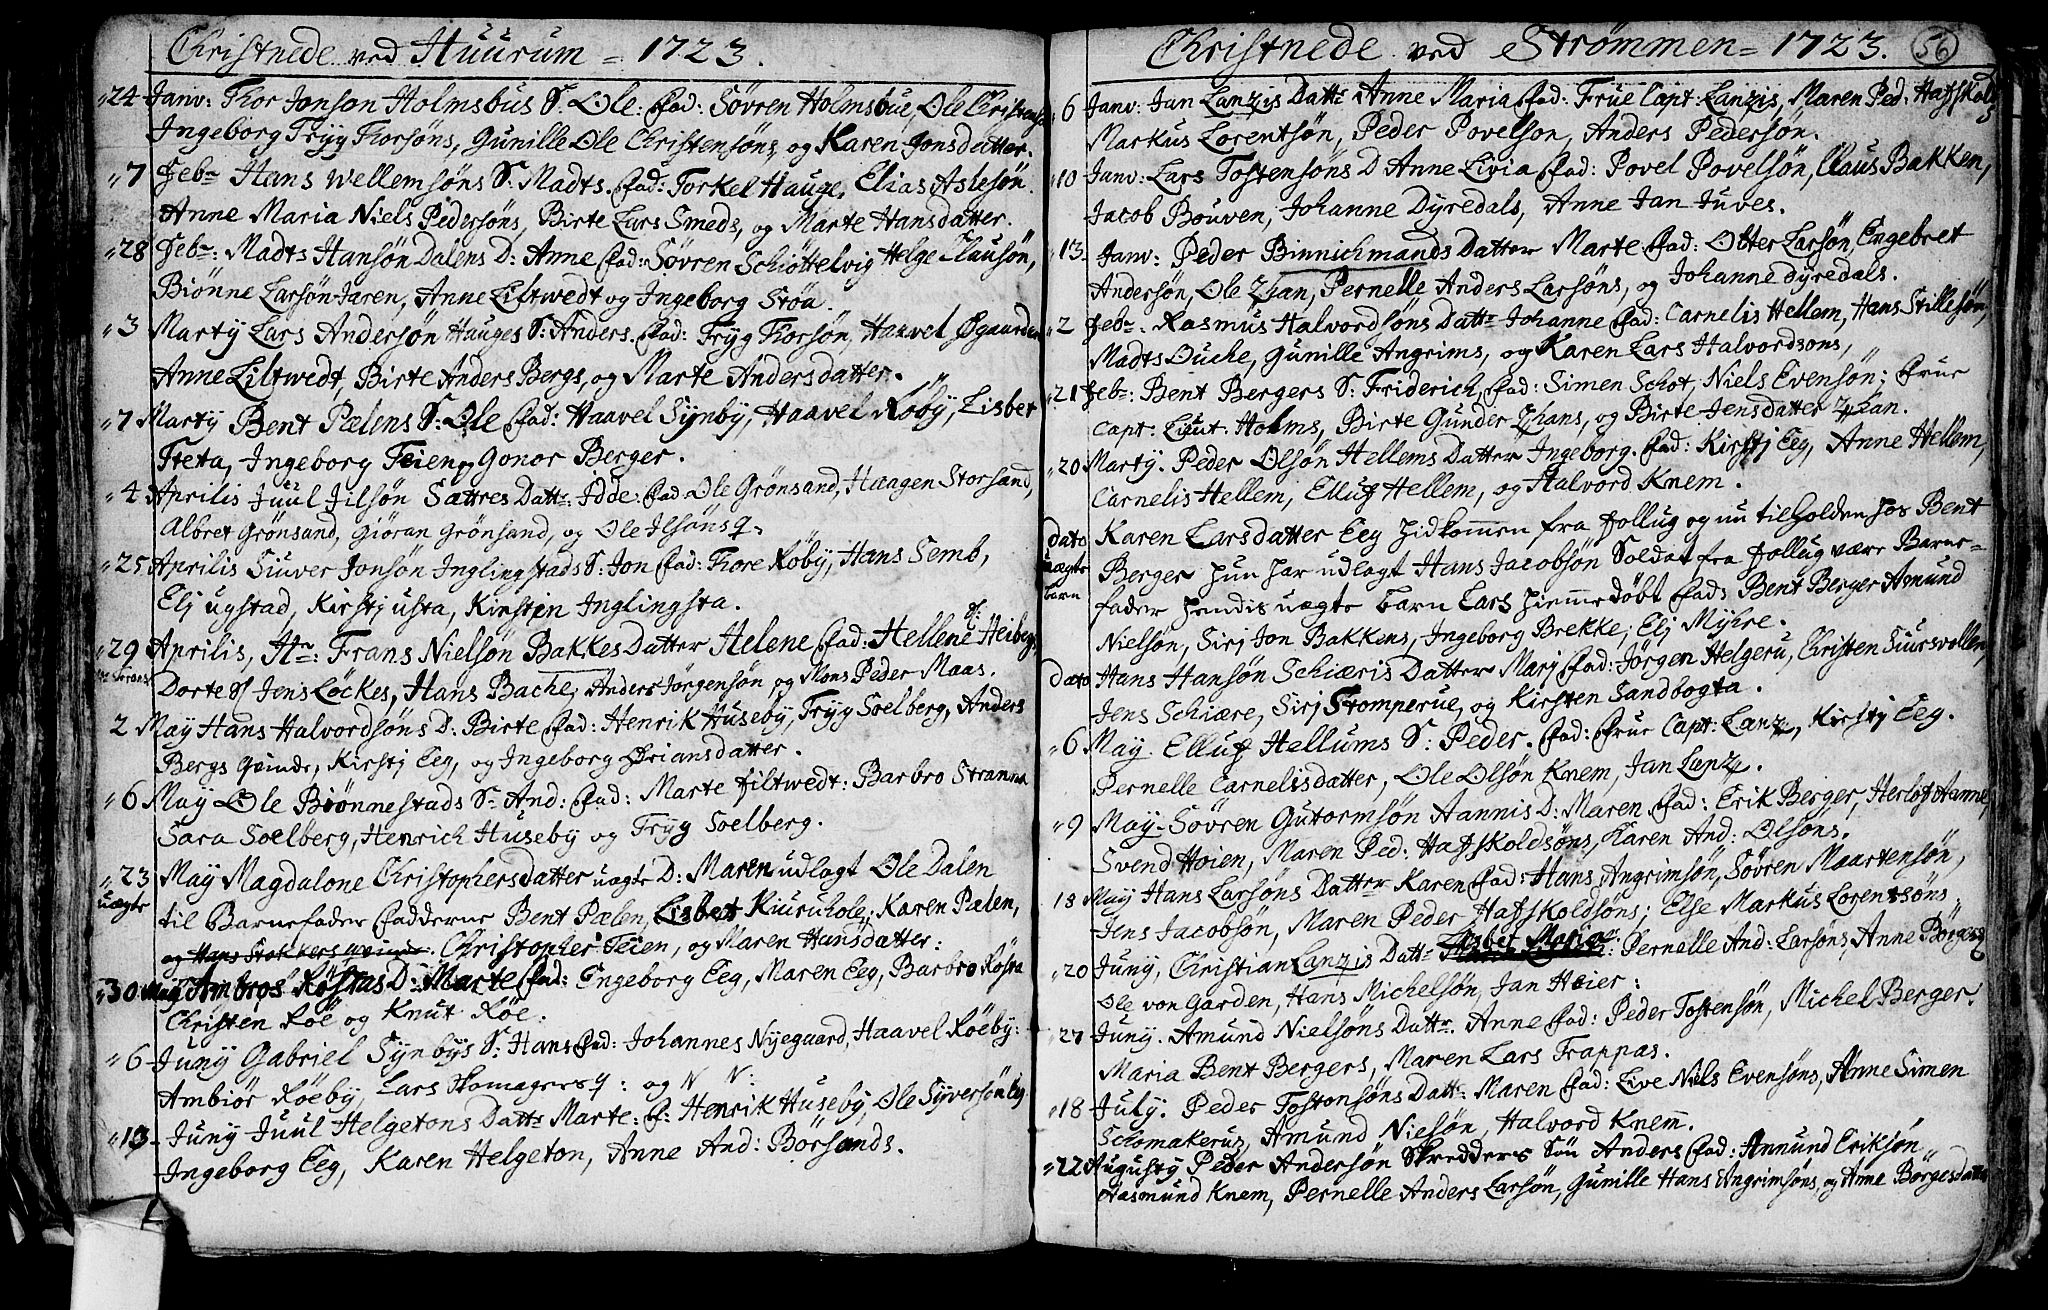 Christnede ved Huurum = 1723.
24 Janv: Thor Jonsøn Holmsbus S. Ole: Fad: Søvren Holmsbue, Ole Christensø
Ingeborg Tryg Thorsøns, Gunille Ole Christensøns, og Karen Jonsdatter.
7 Feb: Hans Wellemsøns S: Madts. Fad: Torkel Hauge, Elias Aslesøn.
Anne Maria Niels Pedersøns, Birte Lars Smeds, og Marte Hansdatter.
28 Feb: Madts Hansøn Dalens D: Anne Fad: Søvren Schiøttelvig Helge Clausøn,
Biønne Larsøn Jaren, Anne Liltwedt og Ingeborg Støa.
3 Marty Lars Andersøn Hauges S: Anders. Fad: Tryg Thorsøn, Haavel Øgaarden
Anne Liltwedt, Birte Anders Bergs, og Marte Andersdatter.
7 Marty Bent Pælens S: Ole Fad: Haavel Synby, Haavel Røby, Lisbet
Treta, Ingeborg Teien, Gonor Berger.
4 Aprilis Juul Jilsøn Sættres Datt: Idde: Fad Ole Grønsand, Haagen Storsand,
Albret Grønsand, Giøran Grønsand, og Ole Ilsøns q.
25 Aprilis Siuver Jonsøn Inglingstads S: Jon Fad: Thore Røby, Hans Semb,
Elj ugstad, Kirstj usta, Kirsten Inglingsta.
29 Aprilis, Hr: Frans Nielsøn Bakkes Datter Helene Fad: Hellene Heiberg
Dorte Sl Jens Løckes, Hans Bache, Anders Jørgensøn og Mons Peder Maas.
2 May Hans Halvordsøns D: Birte Fad: Henrik Huseby, Tryg Soelberg, Anders
Bergs Qvinde, Kirstj Eeg, og Ingeborg Ørjansdatter.
6 May Ole Biønnestads S: And: Fad: Marte Filtwedt: Barbro Stranna
Sara Soelberg, Henrich Huseby og Tryg Soelberg.
23 May Magdalone Christophersdatter uægte D: Maren udlagt Ole Dalen
uægte til Barnefader Fadderne Bent Pælen, Lisbet Kiuruhole, Karen Pælen,
og Hans Stokkers qvinde. Christopher Teien, og Maren Hansdatter:
30 May Ambros Røstas D: Marte Fad: Ingeborg Eeg, Maren Eeg, Barbro Røsta
Christen Røe og Knut Røe:
6 Juny Gabriel Synbys S: Hans Fad: Johannes Nyegaard, Haavel Røeby:
Ambiør Røeby, Lars Homagers q: og N N:
13 Juny Juul Helgetons Datt: Marte: F: Henrik Huseby, Ole Syversøn
Ingeborg Eeg, Karen Helgeton, Anne And: Børsands.
Christnede ved Strømmen = 1723. 56
6 Janv: Jan Lanzis Datt: Anne Maria Fad: Frue Capt: Lanzis, Maren Ped: Hafskolds
Markus Lorentsøn, Peder Povelson, Anders Pedersøn.
10 Janv: Lars Tostensøns D Anne Livia Fad: Povel Povelsøn, Claus Bakken,
Jacob Bouven, Johanne Dyredals, Anne Jan Juves.
13 Janv: Peder Binnichmands Datter Marte Fad: Otter Larsøn, Engebret
Andersøn, Ole Zhan, Pernelle Anders Larsøns, og Johanne dyredals.
2 Feb: Rasmus Halvordsøns Datt: Johanne Fad: Carnelis Hellem, Hans Stillesøn,
Madts Ouche, Gunille Angrims, og Karen Lars Halvordsons,
21 Feb: Bent Bergers S: Friderich, Fad: Simen Schot, Niels Evensøn; Frue
Capt: Liut: Holms, Birte Gunder Zhans, og Birte Jensdatter Zhan.
20 Marty. Peder Olsøn Hellems Datter Ingeborg. Fad: Kirstj Eeg, Anne Hellem,
Carnelis Hellem, Elluf Hellem, og Halvord Knem.
dato Karen Larsdatter Eeg hidkommen fra Follug og nu tilholden hos Bent
uægte Berger hun har udlagt Hans Jacobsøn Soldat fra Follug være Barne-
barn fader hendis uægte barn Lars hiemmedøbt Fads Bent Berger Amund
Nielsøn, Sirj Jon Bakkens, Ingeborg Brekke, Elj Myhre.
Dato Hans Hansøn Schiæris Datter Marj Fad: Jørgen Helgeru, Christen Siursvollen,
Jens Schiære, Sirj Stomperue, og Kirsten Sandbogta.
6 May. Elluf Hellums S: Peder. Fad: Frue Capt: Lanz, Kirstj Eeg.
Pernelle Carnelisdatter, Ole Olsøn Knem, Jan Lanz.
9 May. Søvren Gutormsøn Hannis D: Maren Fad: Erik Berger, Herlof Hanne,
Svend Høien, Maren Ped: Hafskoldsøns, Karen And: Olsøns.
18 May Hans Larsøns Datter Karen Fad: Hans Angrimsøn, Søvren Maartensøn,
Jens Jacobsøn, Maren Peder Hafskoldsøns; Else Markus Lorentsøns.
20 Juny, Christian Lanzis Datt: Lisbet Maria: Pernelle And: Larsøns, Anne Børges
Ole von Garden, Hans Michelsøn, Jan Heier:
27 Juny. Amund Nielsøns Datt. Anne Fad: Peder Tostensøn, Michel Berger.
Maria Bent Bergers, Maren Lars Trappas.
18 July. Peder Tostonsøns Datt: Maren Fad: Live Niels Evensøns, Anne Simen
Schomakerus, Amund Nielsøn, Halvord Knem.
22 Augusty Peder Andersøn Skredders Søn Anders Fad: Annund Eriksøn
Aasmund Knem, Pernelle Anders Larsøn, Gunille Hans Angrimsøns, og Anne Børgesdatter